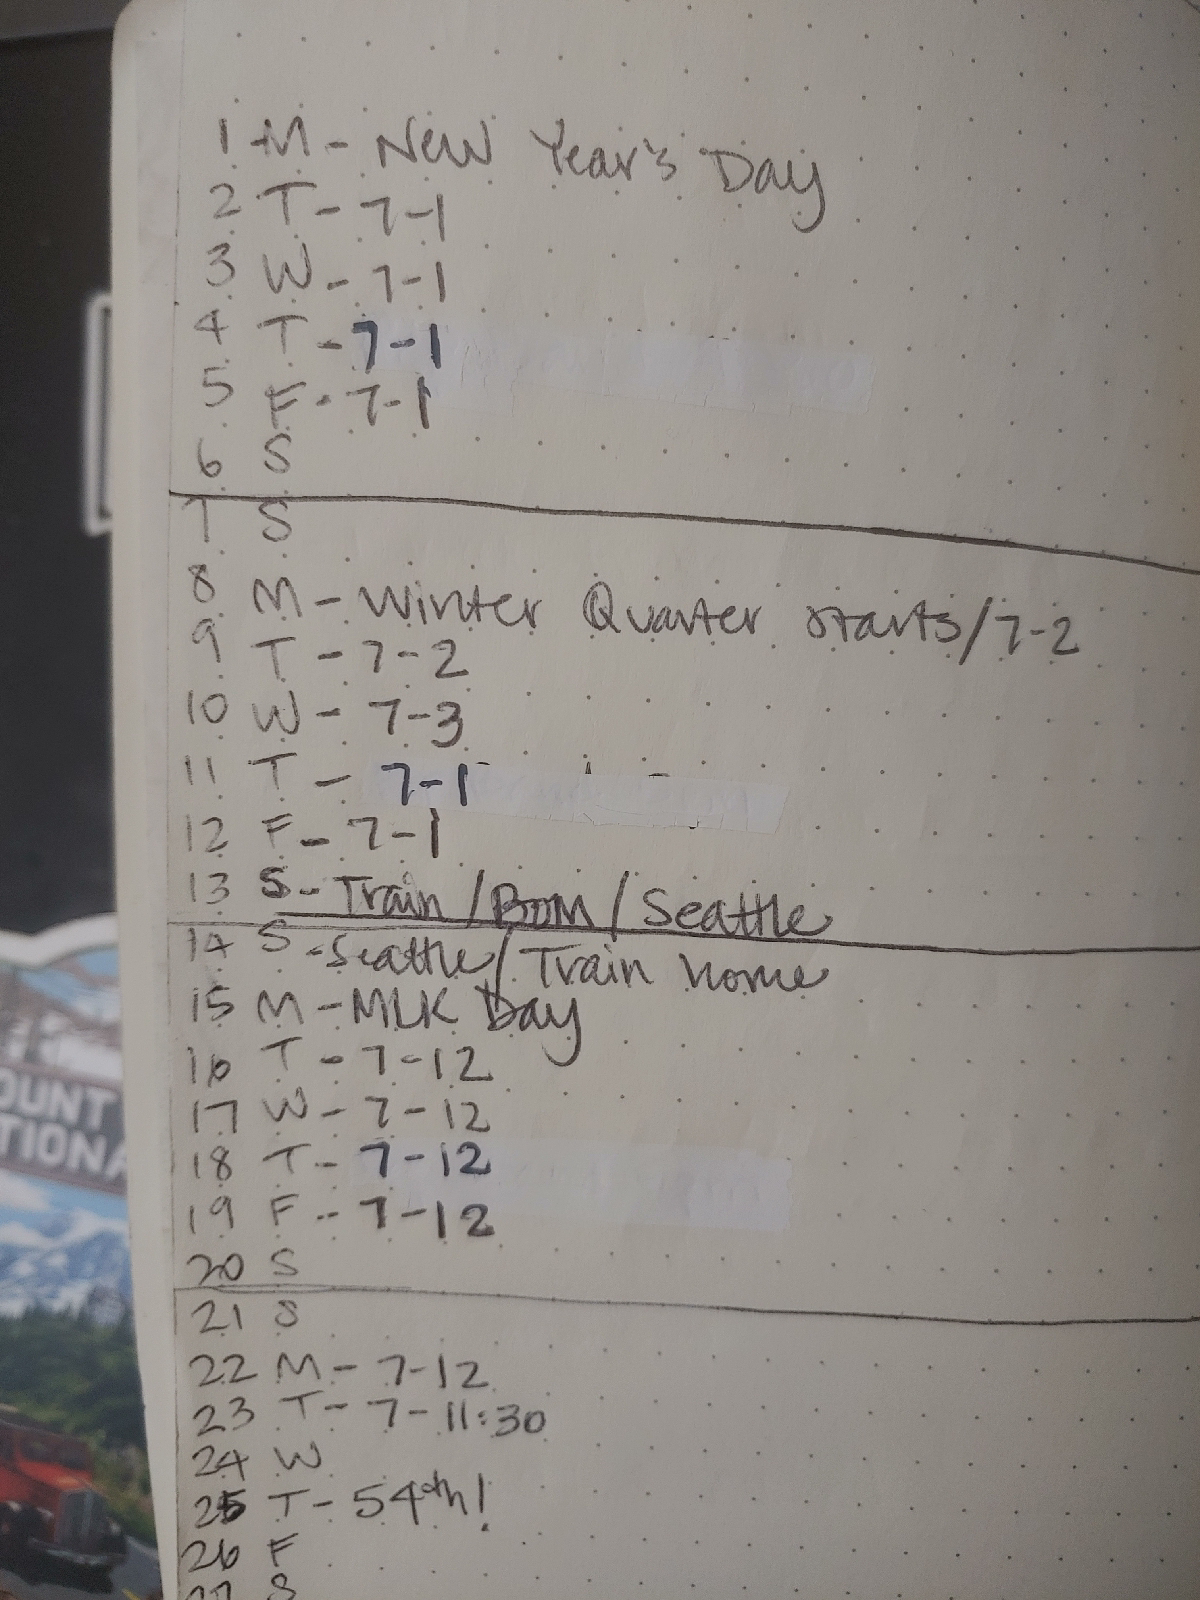 1 M - New Year's Day
2 T - 7-1
3 W - 7-1
4 T - 7-1
5 F - 7-1
6 S
7 S
8 M - Winter Quarter starts/7-2
9 T - 7-2
10 W - 7-3
11 T - 7-1
12 F - 7-1
13 S - Train/BOM/Seattle
14 S - Seattle/Train home
15 M - MLK Day
16 T - 7-12
17 W - 7-12
18 T - 7-12
19 F - 7-12
20 S
21 S
22 M - 7-12
23 T - 7-11:30
24 W
25 T - 54th!
26 F
27 S
OUNT
TIONA